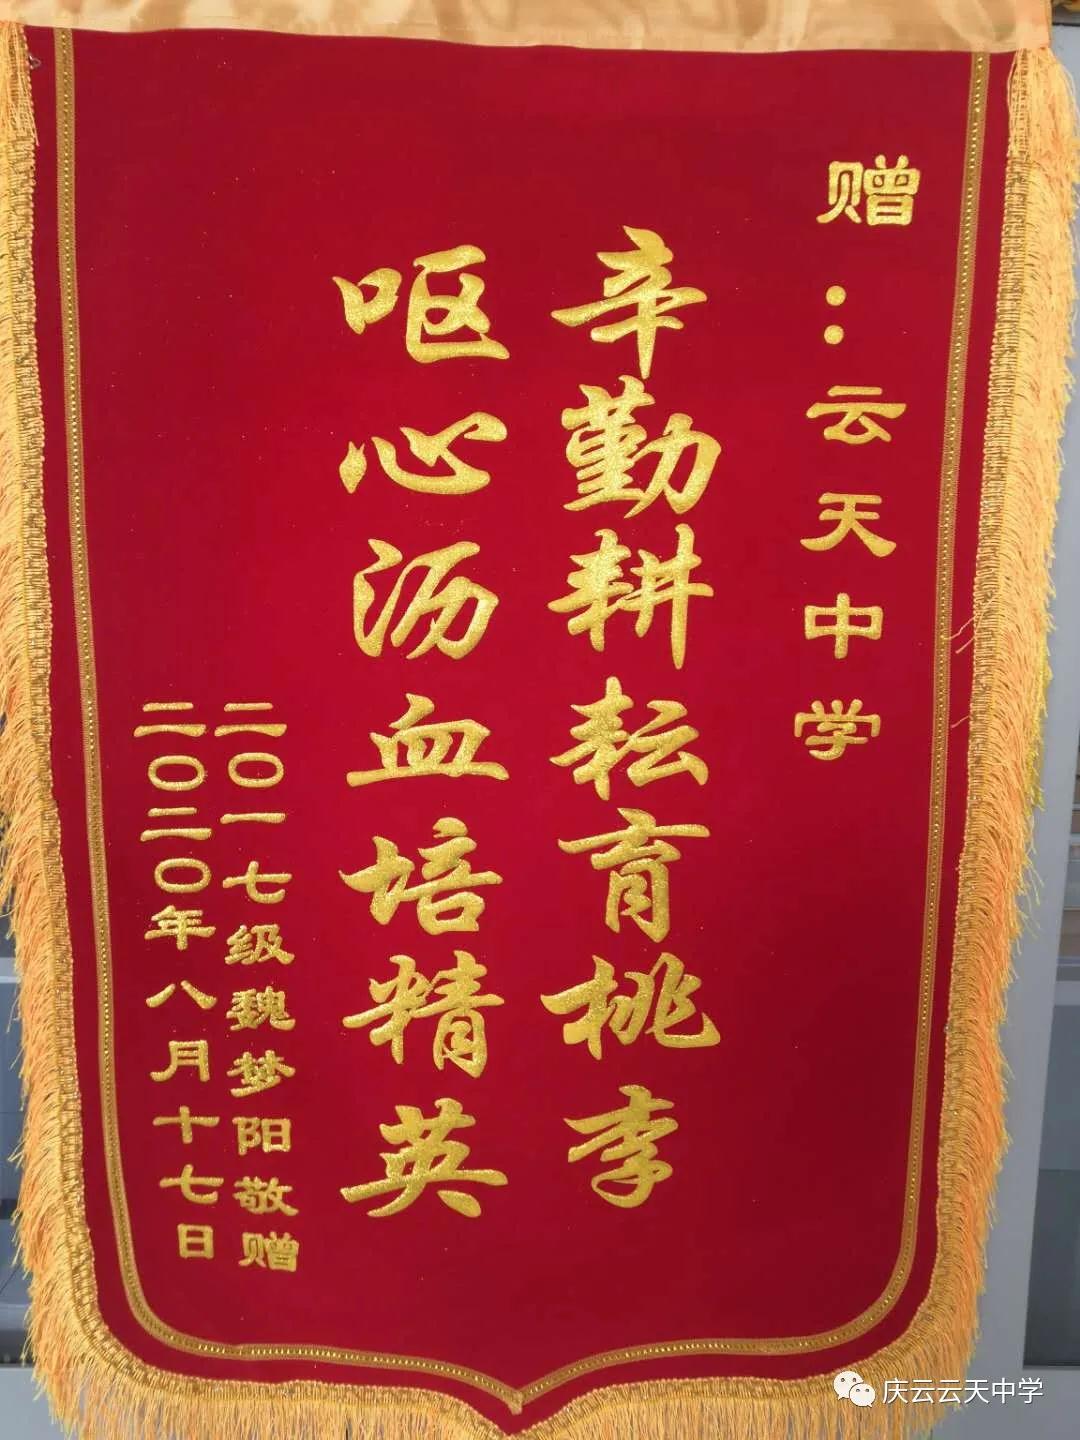 赠：云天中学
辛勤耕耘育桃李
呕心沥血培精英
二〇一七级魏梦阳敬赠
二〇二〇年八月十七日
庆云云天中学